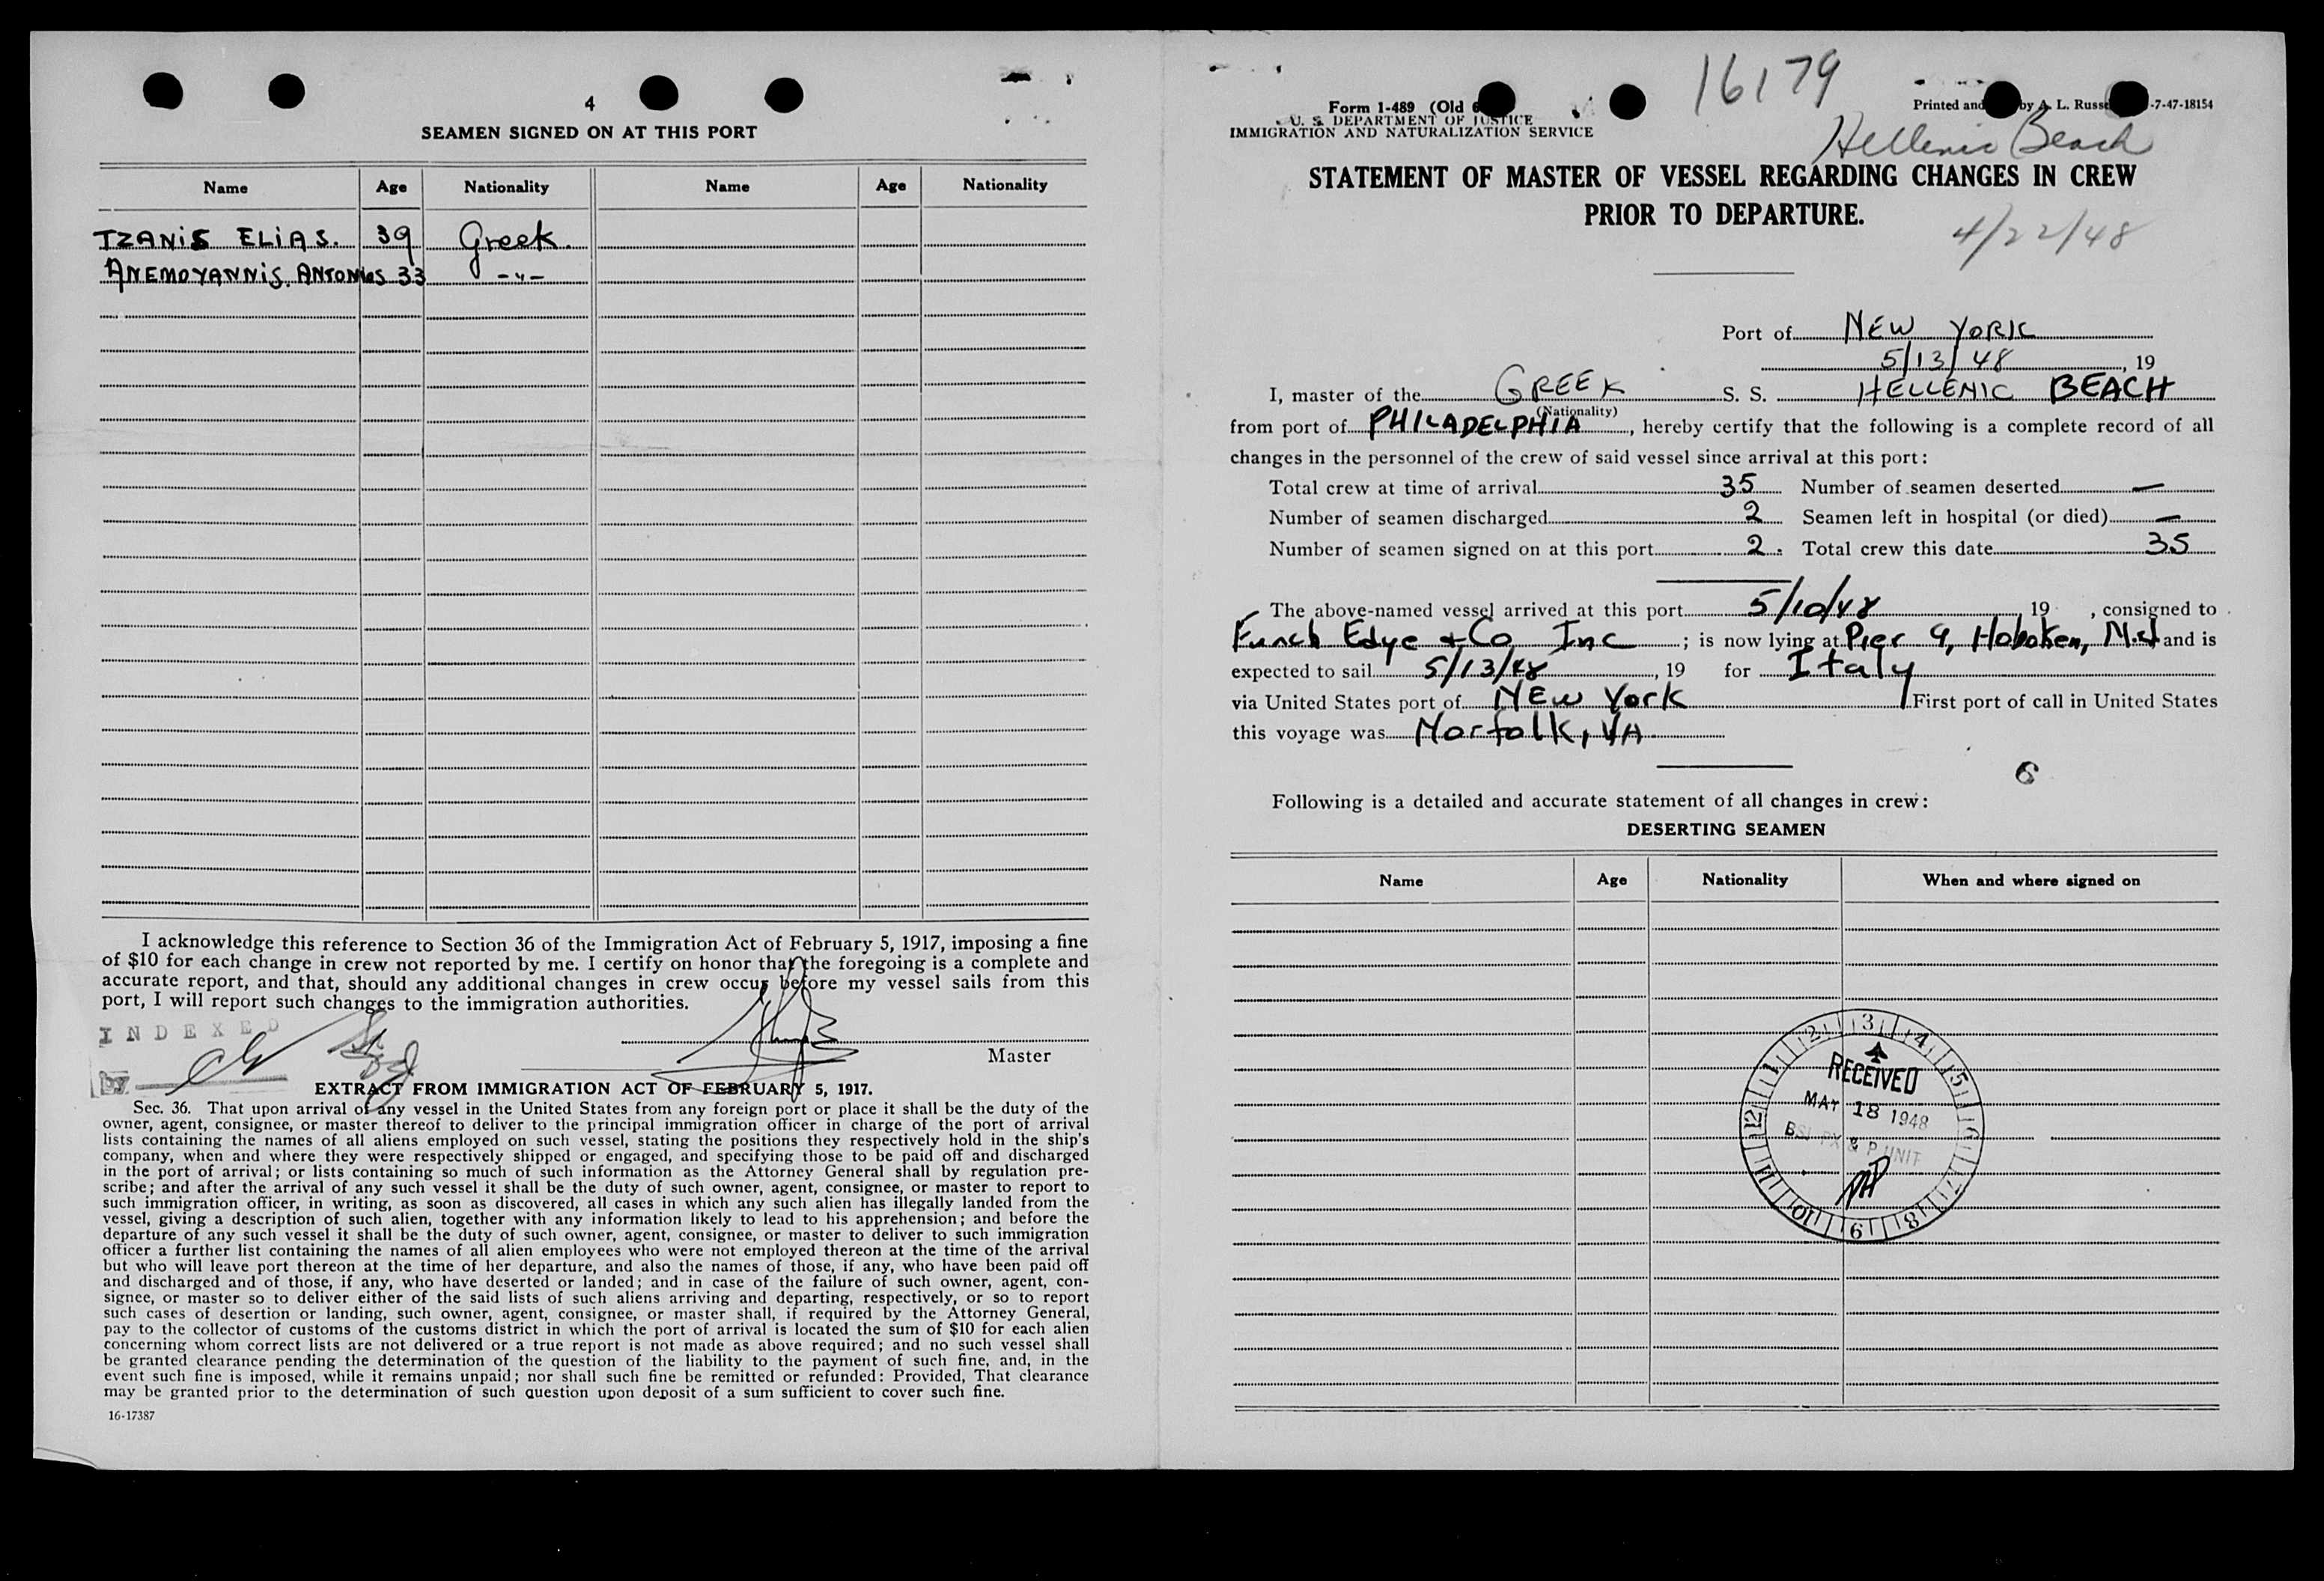 4
SEAMEN SIGNED ON AT THIS PORT
Name Age Nationality Name Age Nationality
TZANIS ELIAS. 39 Greek.
ANEMOYANNIS. ANTONIOS 33 -"-
I acknowledge this reference to Section 36 of the Immigration Act of February 5, 1917, imposing a fine
of $10 for each change in crew not reported by me. I certify on honor that the foregoing is a complete and
accurate report, and that, should any additional changes in crew occur before my vessel sails from this
port, I will report such changes to the immigration authorities.
INDEXED
by
Master
EXTRACT FROM IMMIGRATION ACT OF FEBRUARY 5, 1917.
Sec. 36. That upon arrival of any vessel in the United States from any foreign port or place it shall be the duty of the
owner, agent, consignee, or master thereof to deliver to the principal immigration officer in charge of the port of arrival
lists containing the names of all aliens employed on such vessel, stating the positions they respectively hold in the ship's
company, when and where they were respectively shipped or engaged, and specifying those to be paid off and discharged
in the port of arrival; or lists containing so much of such information as the Attorney General shall by regulation pre-
scribe; and after the arrival of any such vessel it shall be the duty of such owner, agent, consignee, or master to report to
such immigration officer, in writing, as soon as discovered, all cases in which any such alien has illegally landed from the
vessel, giving a description of such alien, together with any information likely to lead to his apprehension; and before the
departure of any such vessel it shall be the duty of such owner, agent, consignee, or master to deliver to such immigration
officer a further list containing the names of all alien employees who were not employed thereon at the time of the arrival
but who will leave port thereon at the time of her departure, and also the names of those, if any, who have been paid off
and discharged and of those, if any, who have deserted or landed; and in case of the failure of such owner, agent, con-
signee, or master so to deliver either of the said lists of such aliens arriving and departing, respectively, or so to report
such cases of desertion or landing, such owner, agent, consignee, or master shall, if required by the Attorney General,
pay to the collector of customs of the customs district in which the port of arrival is located the sum of $10 for each alien
concerning whom correct lists are not delivered or a true report is not made as above required; and no such vessel shall
be granted clearance pending the determination of the question of the liability to the payment of such fine, and, in the
event such fine is imposed, while it remains unpaid; nor shall such fine be remitted or refunded: Provided, That clearance
may be granted prior to the determination of such question upon deposit of a sum sufficient to cover such fine.
16-17387
16179
Form 1-489 (Old
U. S. DEPARTMENT OF JUSTICE
IMMIGRATION AND NATURALIZATION SERVICE
Printed and by A. L. -7-47-18154
Hellenic Beach
STATEMENT OF MASTER OF VESSEL REGARDING CHANGES IN CREW
PRIOR TO DEPARTURE.
4/22/48
Port of NEW YORK
5/13/48, 19
I, master of the GREEK S. S. HELLENIC BEACH
(Nationality)
from port of PHILADELPHIA, hereby certify that the following is a complete record of all
changes in the personnel of the crew of said vessel since arrival at this port:
Total crew at time of arrival 35 Number of seamen deserted —
Number of seamen discharged 2 Seamen left in hospital (or died) —
Number of seamen signed on at this port 2. Total crew this date 35
The above-named vessel arrived at this port 5/10/48, 19 , consigned to
Funch Edye & Co Inc ; is now lying at Pier 9, Hoboken, N.J and is
expected to sail 5/13/48, 19 for Italy
via United States port of NEW York First port of call in United States
this voyage was Norfolk, VA
6
Following is a detailed and accurate statement of all changes in crew:
DESERTING SEAMEN
Name Age Nationality When and where signed on
1 2 3 4 5 6 7 8 9 10 11 12
RECEIVED
MAY 18 1948
& P UNIT